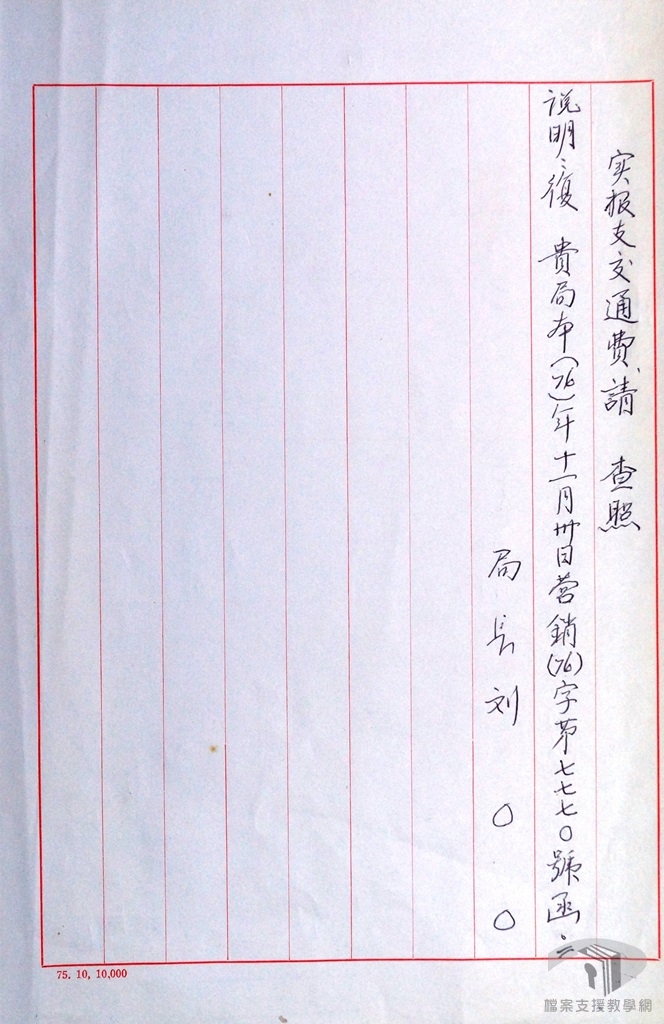 实报支交通費、請　查照
説明：復　貴局本(76)年十一月卅日营銷(76)字第七七七〇號函。
局長刘〇〇
75. 10, 10,000
檔案支援教學網